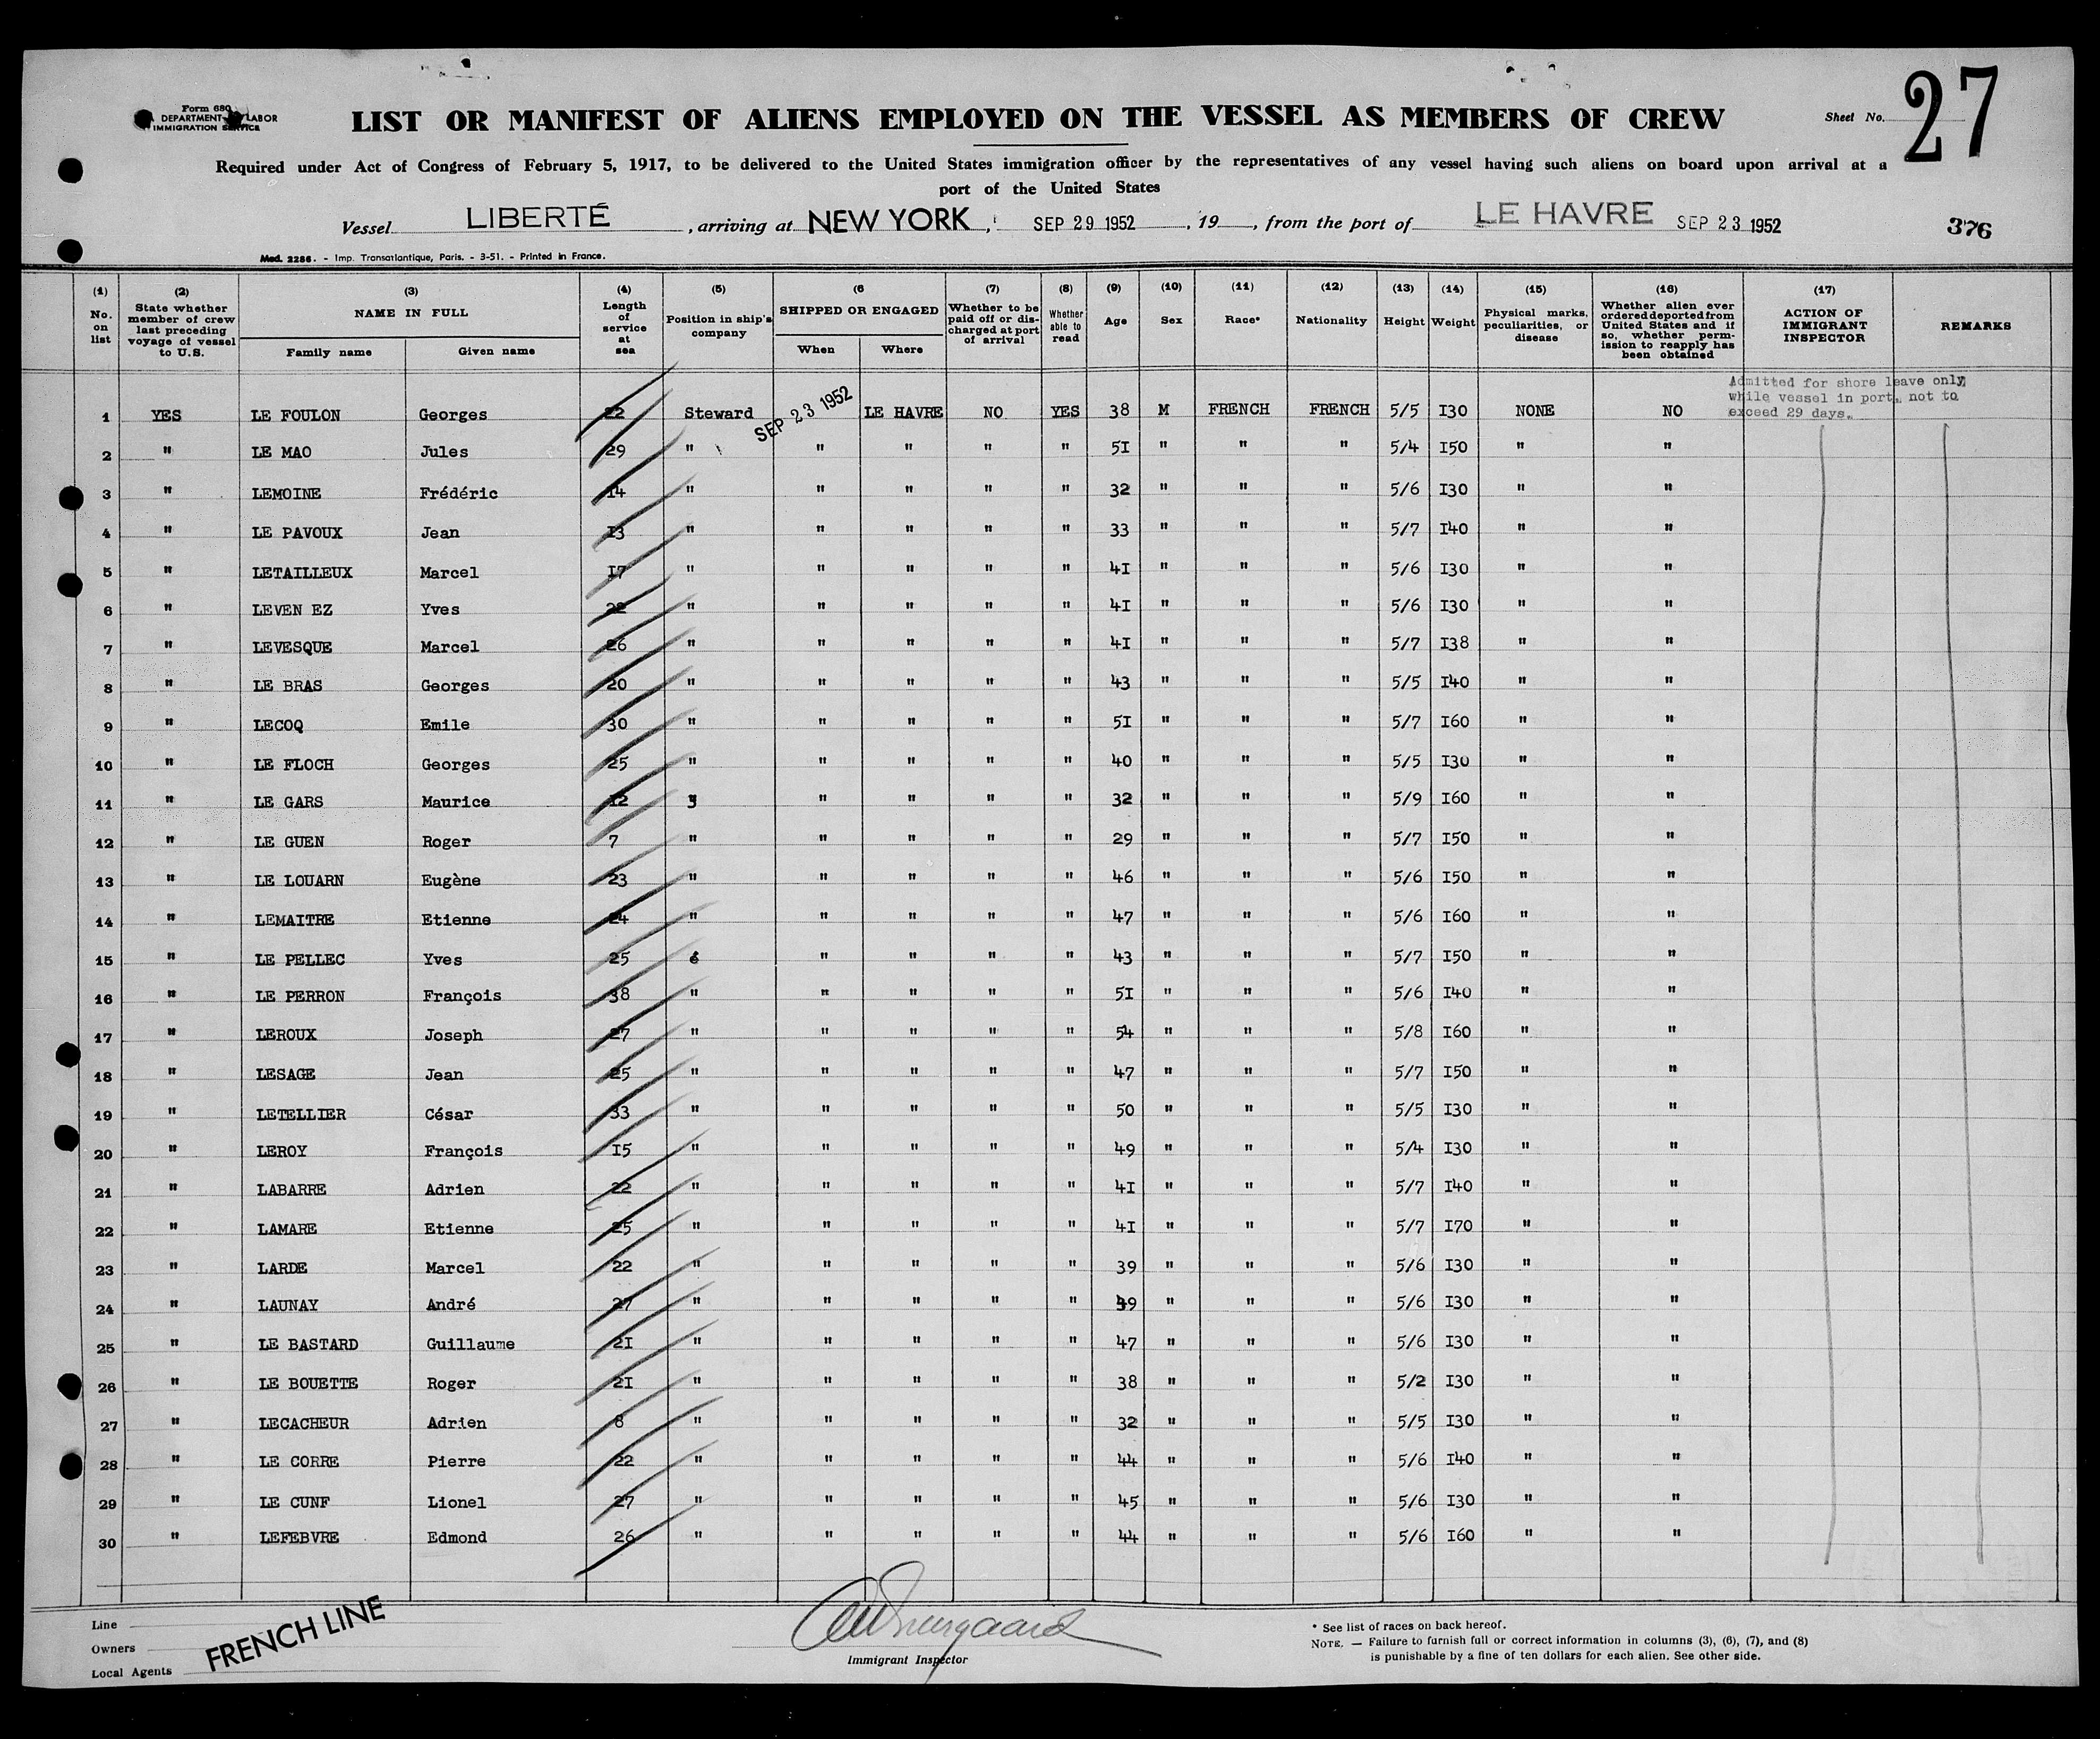 Form 680
DEPARTMENT LABOR
IMMIGRATION SERVICE
LIST OR MANIFEST OF ALIENS EMPLOYED ON THE VESSEL AS MEMBERS OF CREW
Sheet No. 27
Required under Act of Congress of February 5, 1917, to be delivered to the United States immigration officer by the representatives of any vessel having such aliens on board upon arrival at a
port of the United States
Vessel LIBERTÉ , arriving at NEW YORK , SEP 29 1952 , 19 , from the port of LE HAVRE SEP 23 1952 376
Mod. 2286. - Imp. Transatlantique, Paris. - 3-51. - Printed in France.
(1) No. on list (2) State whether member of crew last preceding voyage of vessel to U.S. (3) NAME IN FULL Family name Given name (4) Length of service at sea (5) Position in ship's company (6 SHIPPED OR ENGAGED When Where (7) Whether to be paid off or discharged at port of arrival (8) Whether able to read (9) Age (10) Sex (11) Race* (12) Nationality (13) Height (14) Weight (15) Physical marks, peculiarities, or disease (16) Whether alien ever ordered deported from United States and if so, whether permission to reapply has been obtained (17) ACTION OF IMMIGRANT INSPECTOR REMARKS
Admitted for shore leave only
while vessel in port, not to
exceed 29 days.
1 YES LE FOULON Georges 22 Steward SEP 23 1952 LE HAVRE NO YES 38 M FRENCH FRENCH 5/5 I30 NONE NO
2 " LE MAO Jules 29 " " " " " 5I " " " 5/4 I50 " "
3 " LEMOINE Frédéric I4 " " " " " 32 " " " 5/6 I30 " "
4 " LE PAVOUX Jean I3 " " " " " 33 " " " 5/7 I40 " "
5 " LETAILLEUX Marcel I7 " " " " " 4I " " " 5/6 I30 " "
6 " LEVEN EZ Yves 22 " " " " " 4I " " " 5/6 I30 " "
7 " LEVESQUE Marcel 26 " " " " " 4I " " " 5/7 I38 " "
8 " LE BRAS Georges 20 " " " " " 43 " " " 5/5 I40 " "
9 " LECOQ Emile 30 " " " " " 5I " " " 5/7 I60 " "
10 " LE FLOCH Georges 25 " " " " " 40 " " " 5/5 I30 " "
11 " LE GARS Maurice I2 " " " " " 32 " " " 5/9 I60 " "
12 " LE GUEN Roger 7 " " " " " 29 " " " 5/7 I50 " "
13 " LE LOUARN Eugène 23 " " " " " 46 " " " 5/6 I50 " "
14 " LEMAITRE Etienne 24 " " " " " 47 " " " 5/6 I60 " "
15 " LE PELLEC Yves 25 " " " " 43 " " " 5/7 I50 " "
16 " LE PERRON François 38 " " " " " 5I " " " 5/6 I40 " "
17 " LEROUX Joseph 27 " " " " " 54 " " " 5/8 I60 " "
18 " LESAGE Jean 25 " " " " " 47 " " " 5/7 I50 " "
19 " LETELLIER César 33 " " " " " 50 " " " 5/5 I30 " "
20 " LEROY François I5 " " " " " 49 " " " 5/4 I30 " "
21 " LABARRE Adrien 22 " " " " " 4I " " " 5/7 I40 " "
22 " LAMARE Etienne 25 " " " " " 4I " " " 5/7 I70 " "
23 " LARDE Marcel 22 " " " " " 39 " " " 5/6 I30 " "
24 " LAUNAY André 27 " " " " " " " " 5/6 I30 " "
25 " LE BASTARD Guillaume 2I " " " " " 47 " " " 5/6 I30 " "
26 " LE BOUETTE Roger 2I " " " " " 38 " " " 5/2 I30 " "
27 " LECACHEUR Adrien 8 " " " " " 32 " " " 5/5 I30 " "
28 " LE CORRE Pierre 22 " " " " " 44 " " " 5/6 I40 " "
29 " LE CUNF Lionel 27 " " " " " 45 " " " 5/6 I30 " "
30 " LEFEBVRE Edmond 26 " " " " " 44 " " " 5/6 I60 " "
Line
Owners
Local Agents
FRENCH LINE
Immigrant Inspector
* See list of races on back hereof.
NOTE. — Failure to furnish full or correct information in columns (3), (6), (7), and (8)
is punishable by a fine of ten dollars for each alien. See other side.